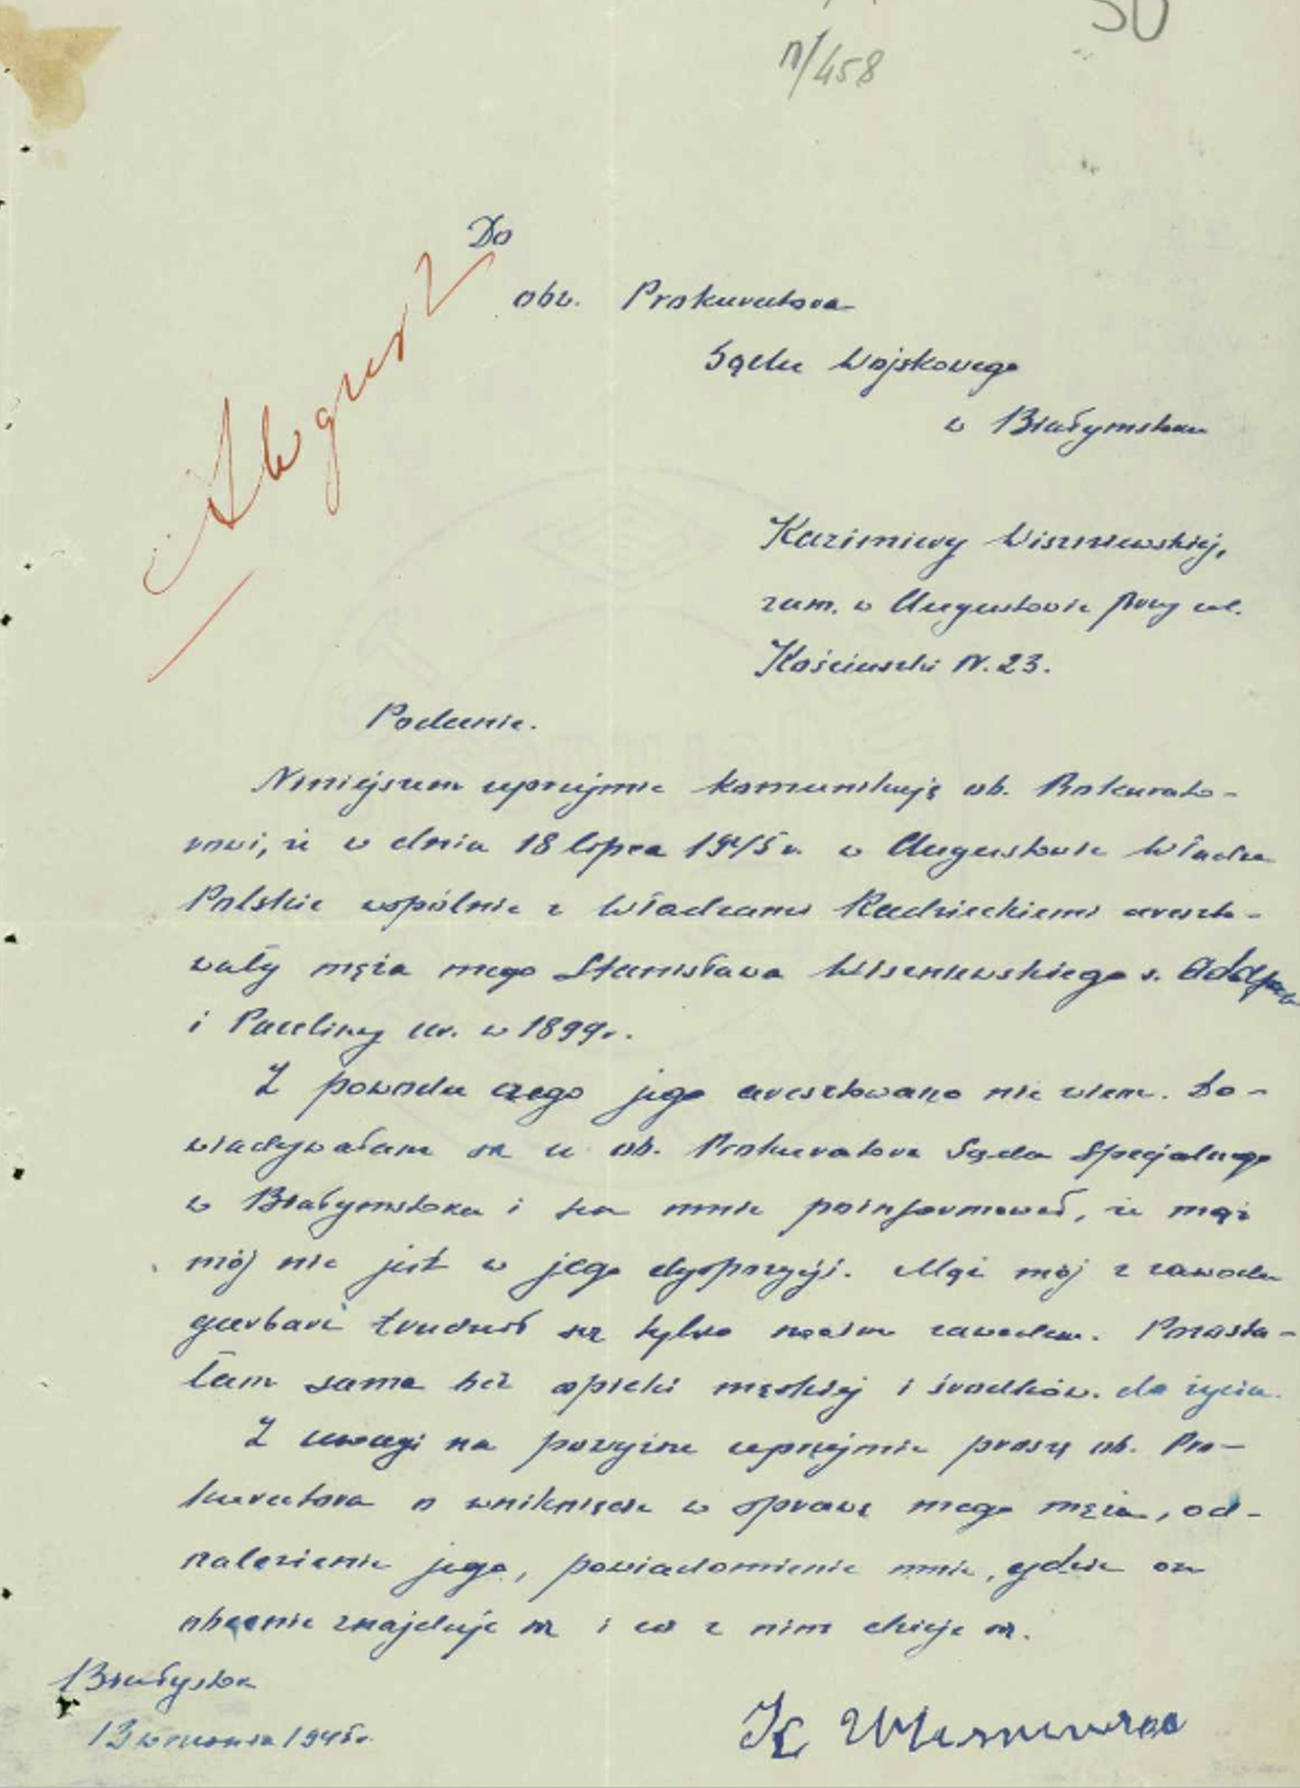 50
n/458
Do
obw. Prokuratora
Sądu Wojskowego
w Białymstoku
Kazimiery Wiszniewskiej,
zam. w Augustowie przy ul.
Kościuszki N. 23.
Podanie.
Niniejszem uprzejmie komunikuję ob. Prokurato-
rowi, iż w dniu 18 lipca 1945 r. w Augustowie Władze
Polskie wspólnie z Władzami Radzieckiemi areszto-
wały męża mego Stanisława Wiszniewskiego s. Adolfa
i Pauliny ur. w 1899 r.
Z powodu czego jego aresztowano nie wiem. Do-
wiadywałam się u ob. Prokuratora Sądu Specjalnego
w Białymstoku i ten mnie poinformował, iż mąż
mój nie jest w jego dyspozycji. Mąż mój z zawodu
garbarz trudnił się tylko swoim zawodem. Pozosta-
łam sama bez opieki męskiej i środków do życia.
Z uwagi na powyższe uprzejmie proszę ob. Pro-
kuratora o wniknięcie w sprawę mego męża, od-
nalezienie jego, powiadomienie mnie, gdzie on
obecnie znajduje się i co z nim dzieje się.
Białystok
13 września 1945 r.
K Wiszniewska